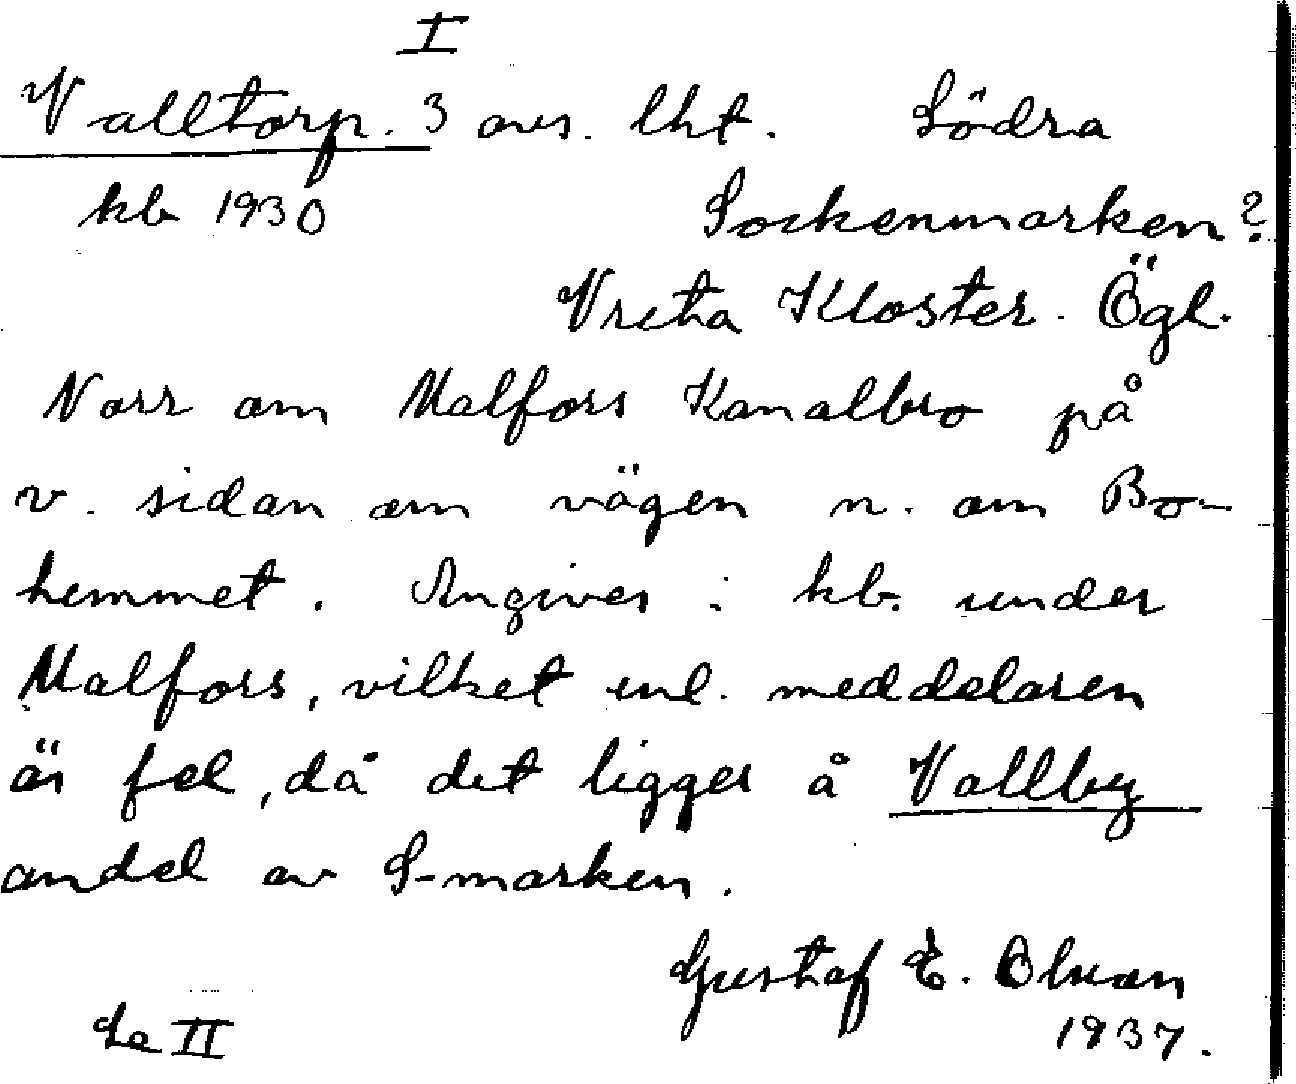 I
Valltorp. 3 avs. lht. Södra
kb 1930 Sockenmarken?
Vreta Kloster. Ögl.
Norr om Malfors Kanalbro på
v. sidan om vägen n. om Bo-
hemmet. Angives i kb. under
Malfors, vilket enl. meddelaren
är fel, då det ligger å Vallby
andel av S-marken.
Gustaf E. Olsson
Se II 1937.